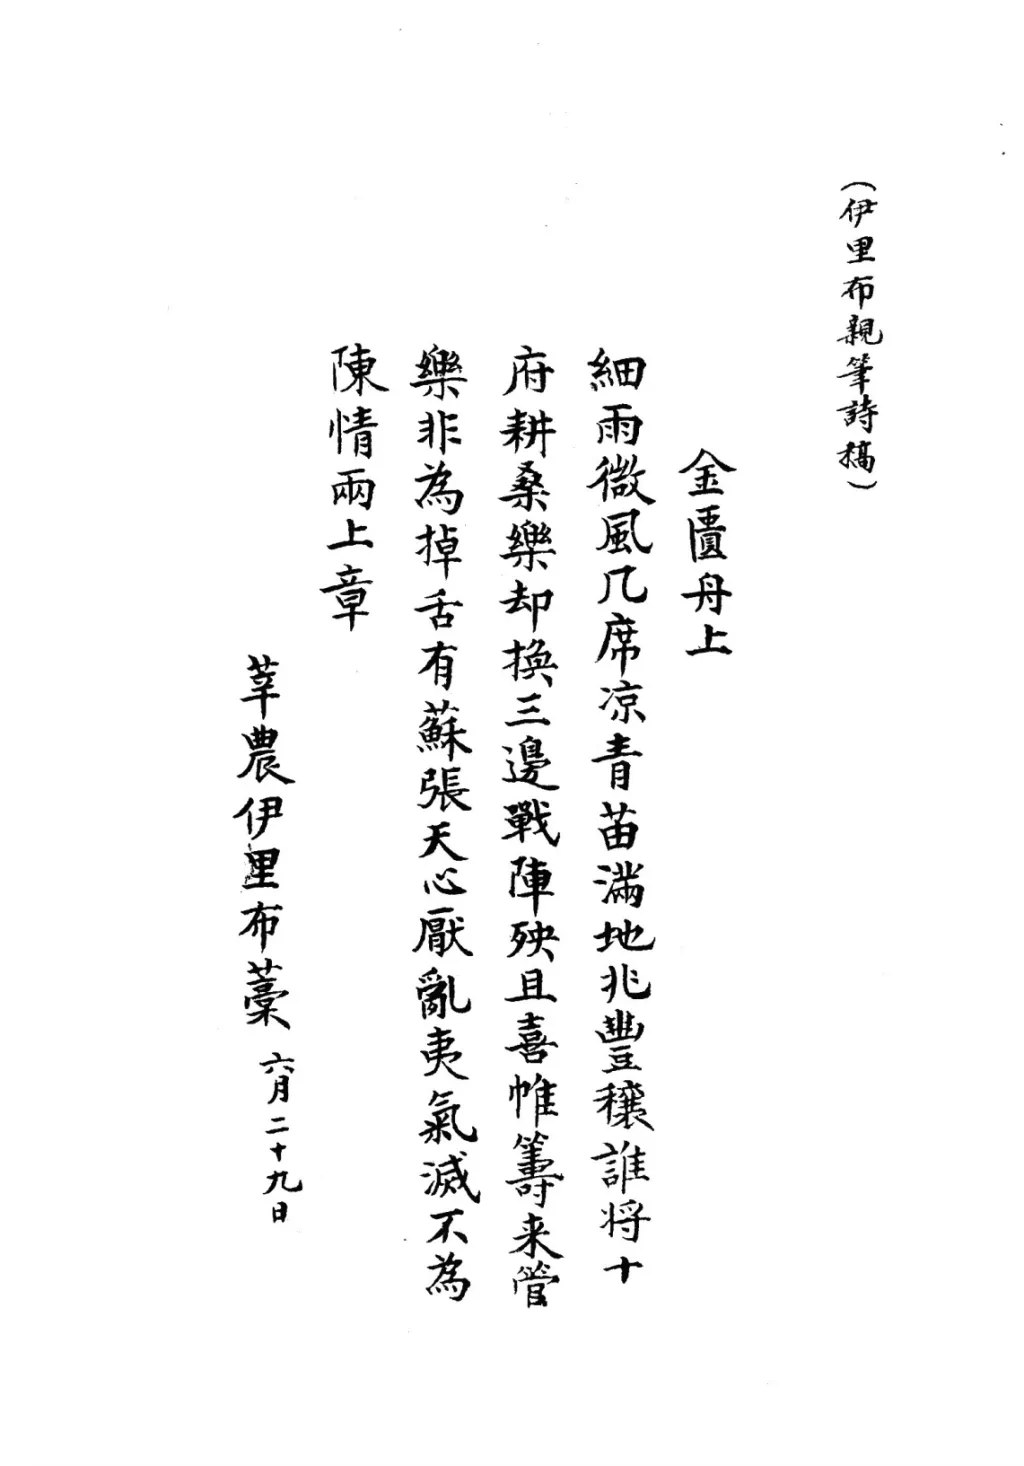 (伊里布親筆詩稿)
金匱舟上
細雨微風几席凉青苗滿地兆豐穰誰将十
府耕桑樂却換三邊戰陣殃且喜帷籌来管
樂非為掉舌有蘇張天心厭亂夷氣滅不為
陳情兩上章
莘農伊里布藁 六月二十九日